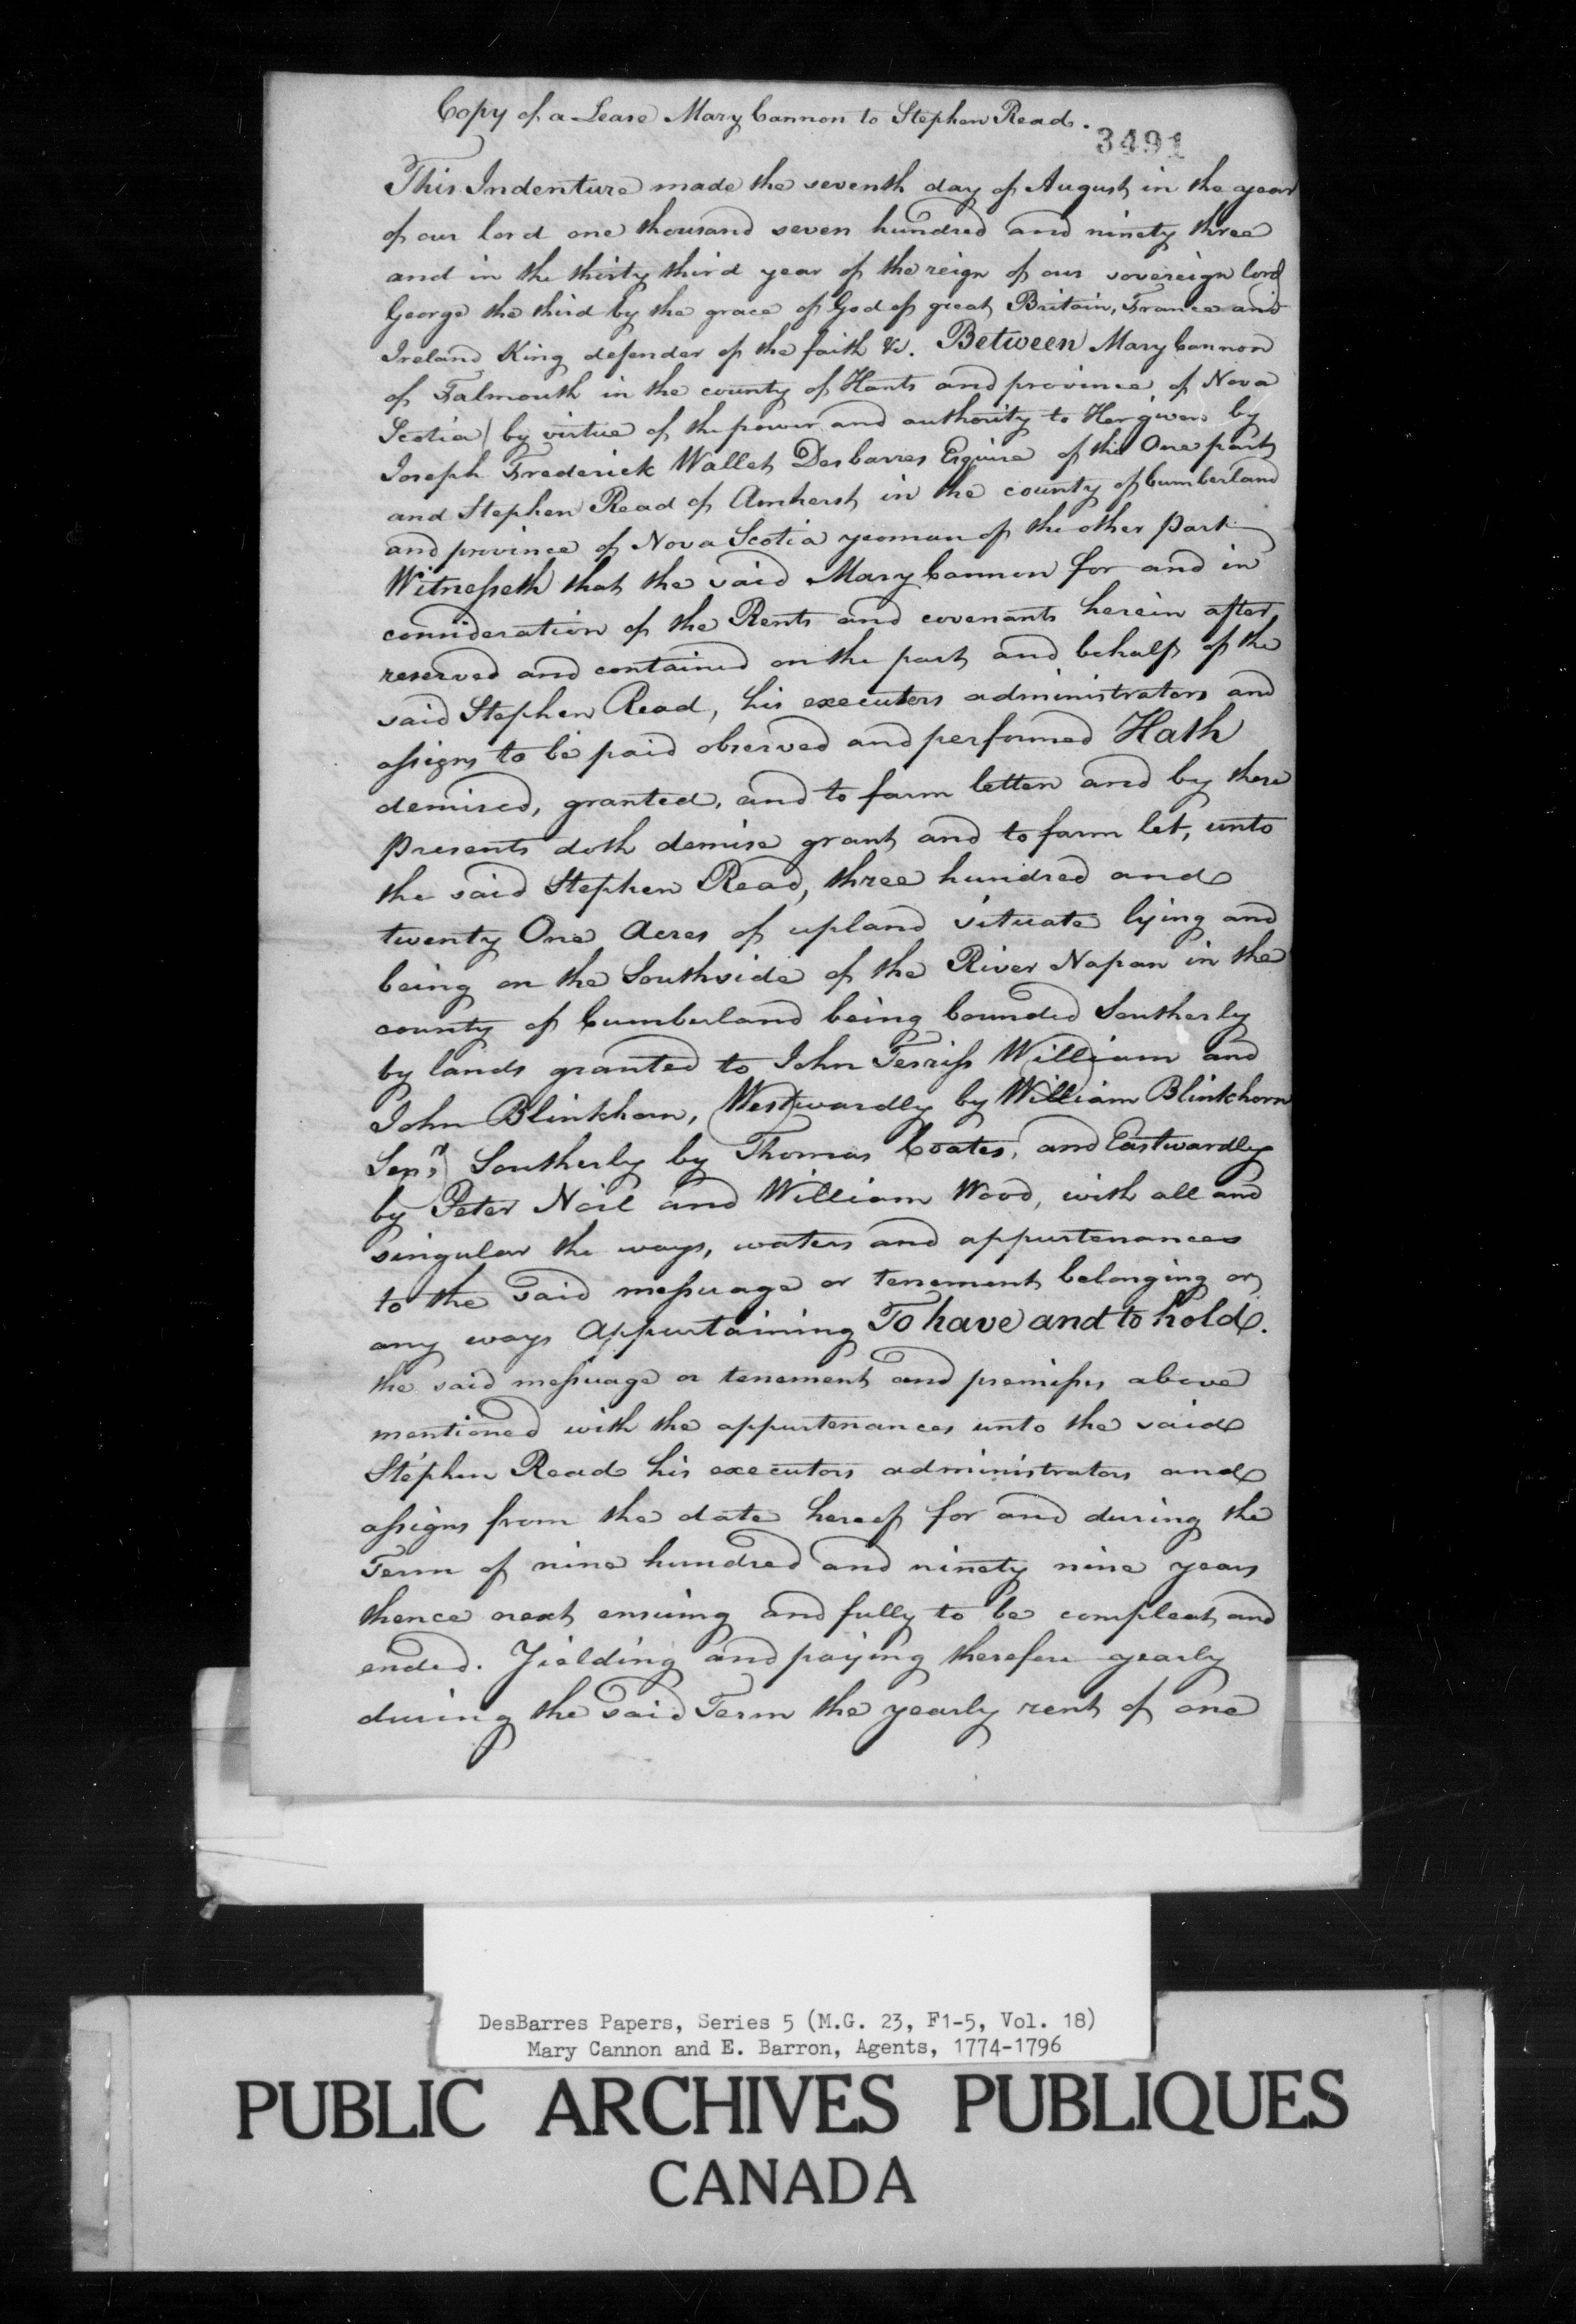 Copy of a Lease Mary Cannon to Stephen Read.
3491
This Indenture made the seventh day of August in the year
of our lord one thousand seven hundred and ninety three
and in the thirty third year of the reign of our sovereign lord
George the third by the grace of God of great Britain, France and
Ireland King defender of the faith &c. Between Mary Cannon
of Falmouth in the county of Hants and province of Nova
Scotia) by virtue of the power and authority to Her given by
Joseph Frederick Wallet Desbarres Esquire of the One part
and Stephen Read of Amherst in the county of Cumberland
and province of Nova Scotia yeoman of the other Part
Witnesseth that the said Mary Cannon for and in
consideration of the Rents and covenants herein after
reserved and contained on the part and behalf of the
said Stephen Read, his executors administrators and
assigns to be paid observed and performed Hath
demised, granted, and to farm letten and by these
Presents doth demise grant and to farm let, unto
the said Stephen Read, three hundred and
twenty One Acres of upland situate lying and
being on the Southside of the River Napan in the
county of Cumberland being bounded Southerly
by lands granted to John Ferriss William and
John Blinkhorn, Westwardly by William Blinkhorn
Senr) Southerly by Thomas Coates, and Eastwardly
by Peter Neil and William Wood, with all and
singular the ways, waters and appurtenances
to the said messuage or tenement belonging or
any ways Appurtaining To have and to hold.
the said messuage or tenement and premisses above
mentioned with the appurtenances unto the said
Stephen Read his executors administrators and
assigns from the date hereof for and during the
Term of nine hundred and ninety nine years
thence next ensuing and fully to be compleat and
ended. Yielding and paying therefore yearly
during the said Term the yearly rent of one
DesBarres Papers, Series 5 (M.G. 23, F1-5, Vol. 18)
Mary Cannon and E. Barron, Agents, 1774-1796
PUBLIC ARCHIVES PUBLIQUES
CANADA